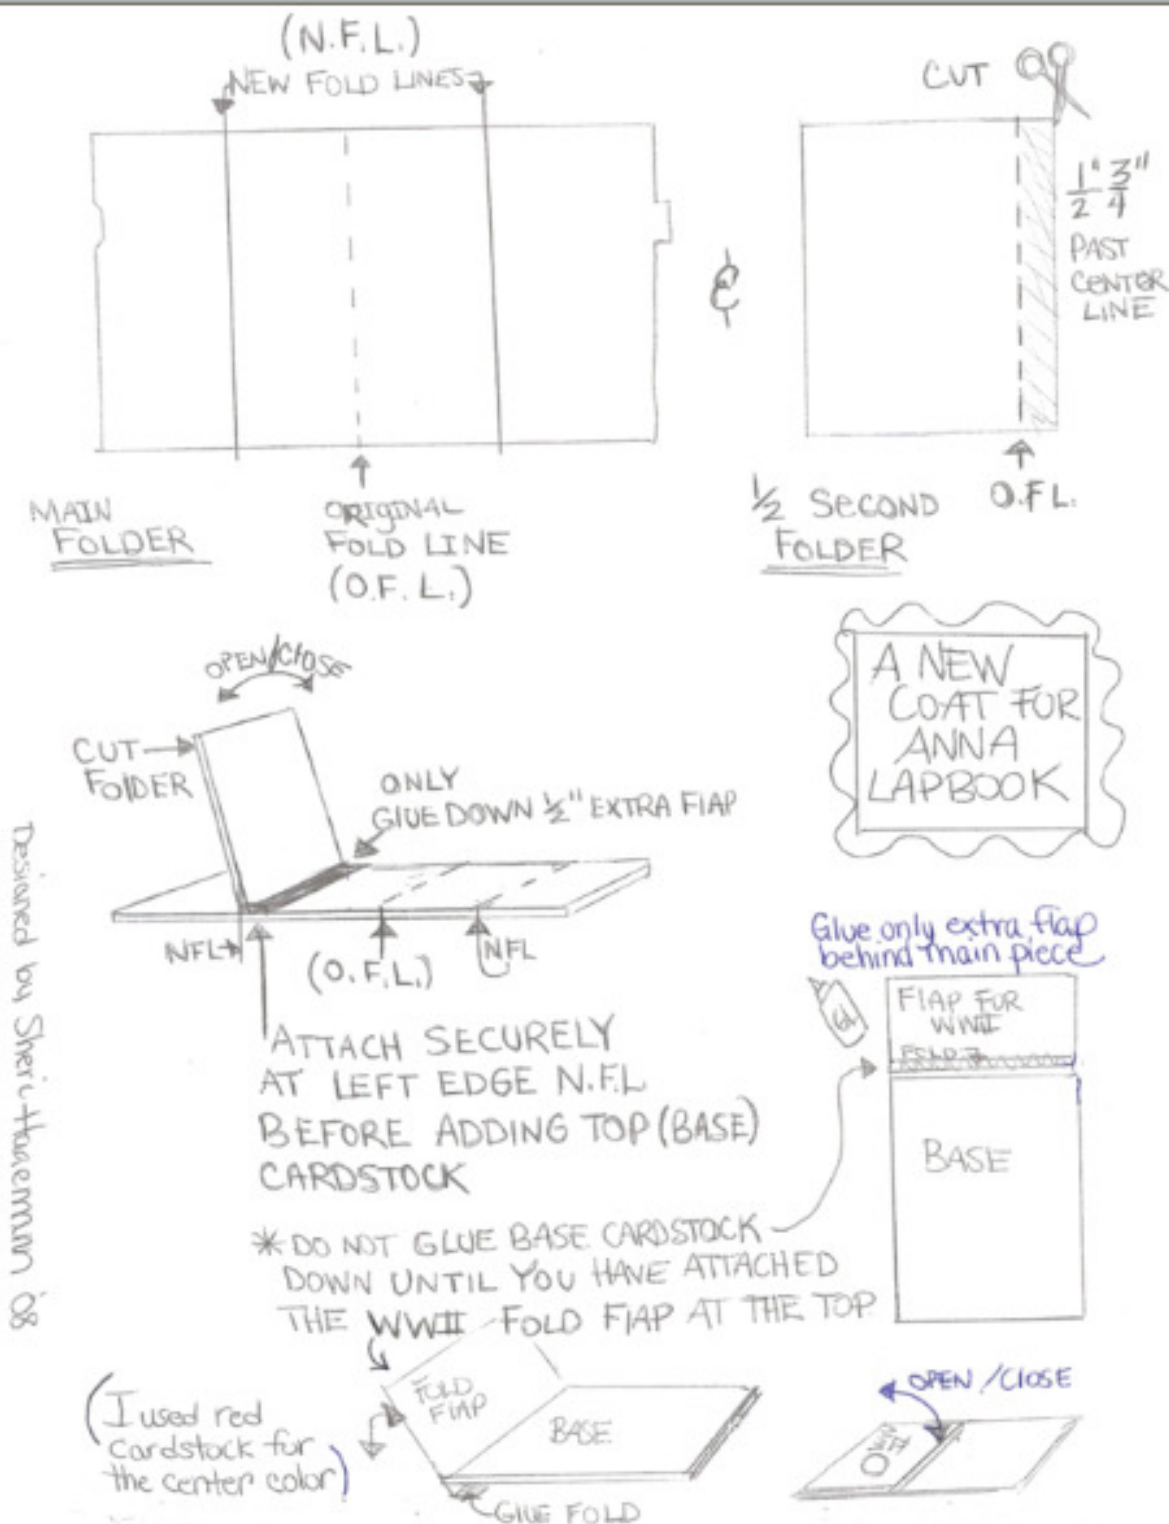 (N.F.L.)
NEW FOLD LINES
CUT
1/2" 3/4"
PAST
CENTER
LINE
&
MAIN
FOLDER
ORIGINAL
FOLD LINE
(O.F.L.)
1/2 SECOND
FOLDER
O.F.L.
OPEN/CLOSE
CUT
FOLDER
ONLY
GLUE DOWN 1/2" EXTRA FLAP
A NEW
COAT FOR
ANNA
LAPBOOK
NFL
(O.F.L.)
NFL
ATTACH SECURELY
AT LEFT EDGE N.F.L
BEFORE ADDING TOP (BASE)
CARDSTOCK
Glue only extra flap
behind main piece
FLAP FOR
WWII
FOLD
BASE
* DO NOT GLUE BASE CARDSTOCK
DOWN UNTIL YOU HAVE ATTACHED
THE WWII FOLD FLAP AT THE TOP
(I used red
cardstock for
the center color)
FOLD
FLAP
BASE
GLUE FOLD
OPEN/CLOSE
Designed by Sheri '08